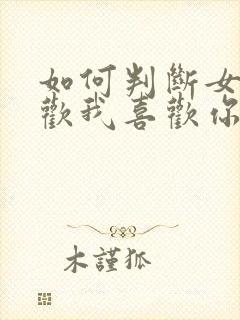 如何判斷女
歡我喜歡你
木謹狐